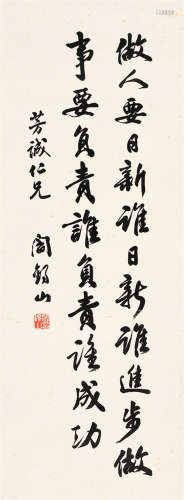 做人要日新誰日新誰進步做
事要負責誰負責誰成功
芳誠仁兄
閻錫山